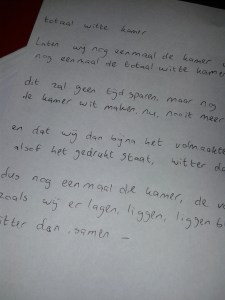 totaal witte kamer
Laten wij nog eenmaal de kamer
nog eenmaal de totaal witte kamer
dit zal geen tijd sparen, maar nog
de kamer wit maken, nu, nooit meer
en dat wij dan bijna het volmaakte
alsof het gedrukt staat, witter da
dus nog eenmaal die kamer, de vo
zoals wij er lagen, liggen, liggen bl
itter dan, samen –